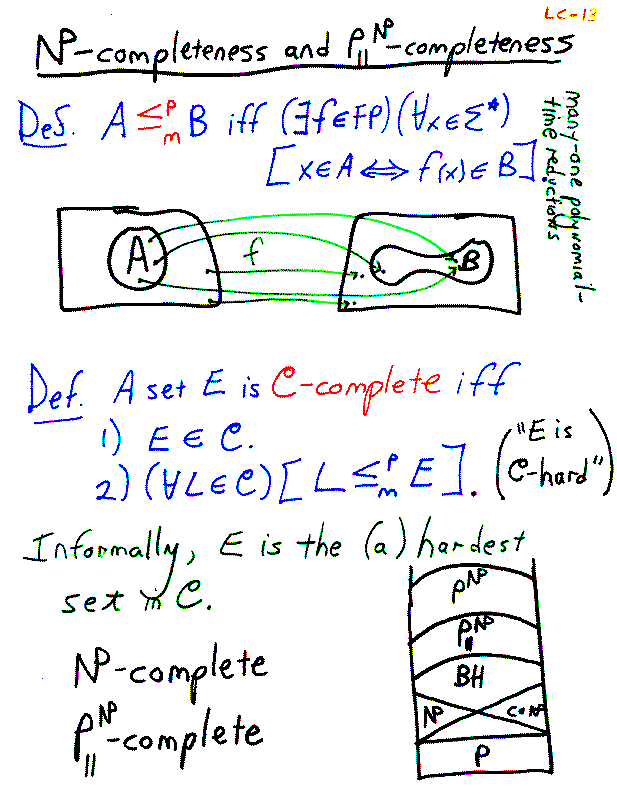 LC-13
NP-completeness and P_||^NP-completeness
Def. A ≤_m^p B iff (∃f∈FP)(∀x∈Σ*)
[x∈A ⟺ f(x)∈B].
many-one polynomial-
time reductions
A f B
Def. A set E is C-complete iff
1) E ∈ C.
2) (∀L∈C)[L ≤_m^p E]. ("E is
C-hard")
Informally, E is the (a) hardest
set in C.
NP-complete
P_||^NP-complete
P^NP
P_||^NP
BH
NP coNP
P